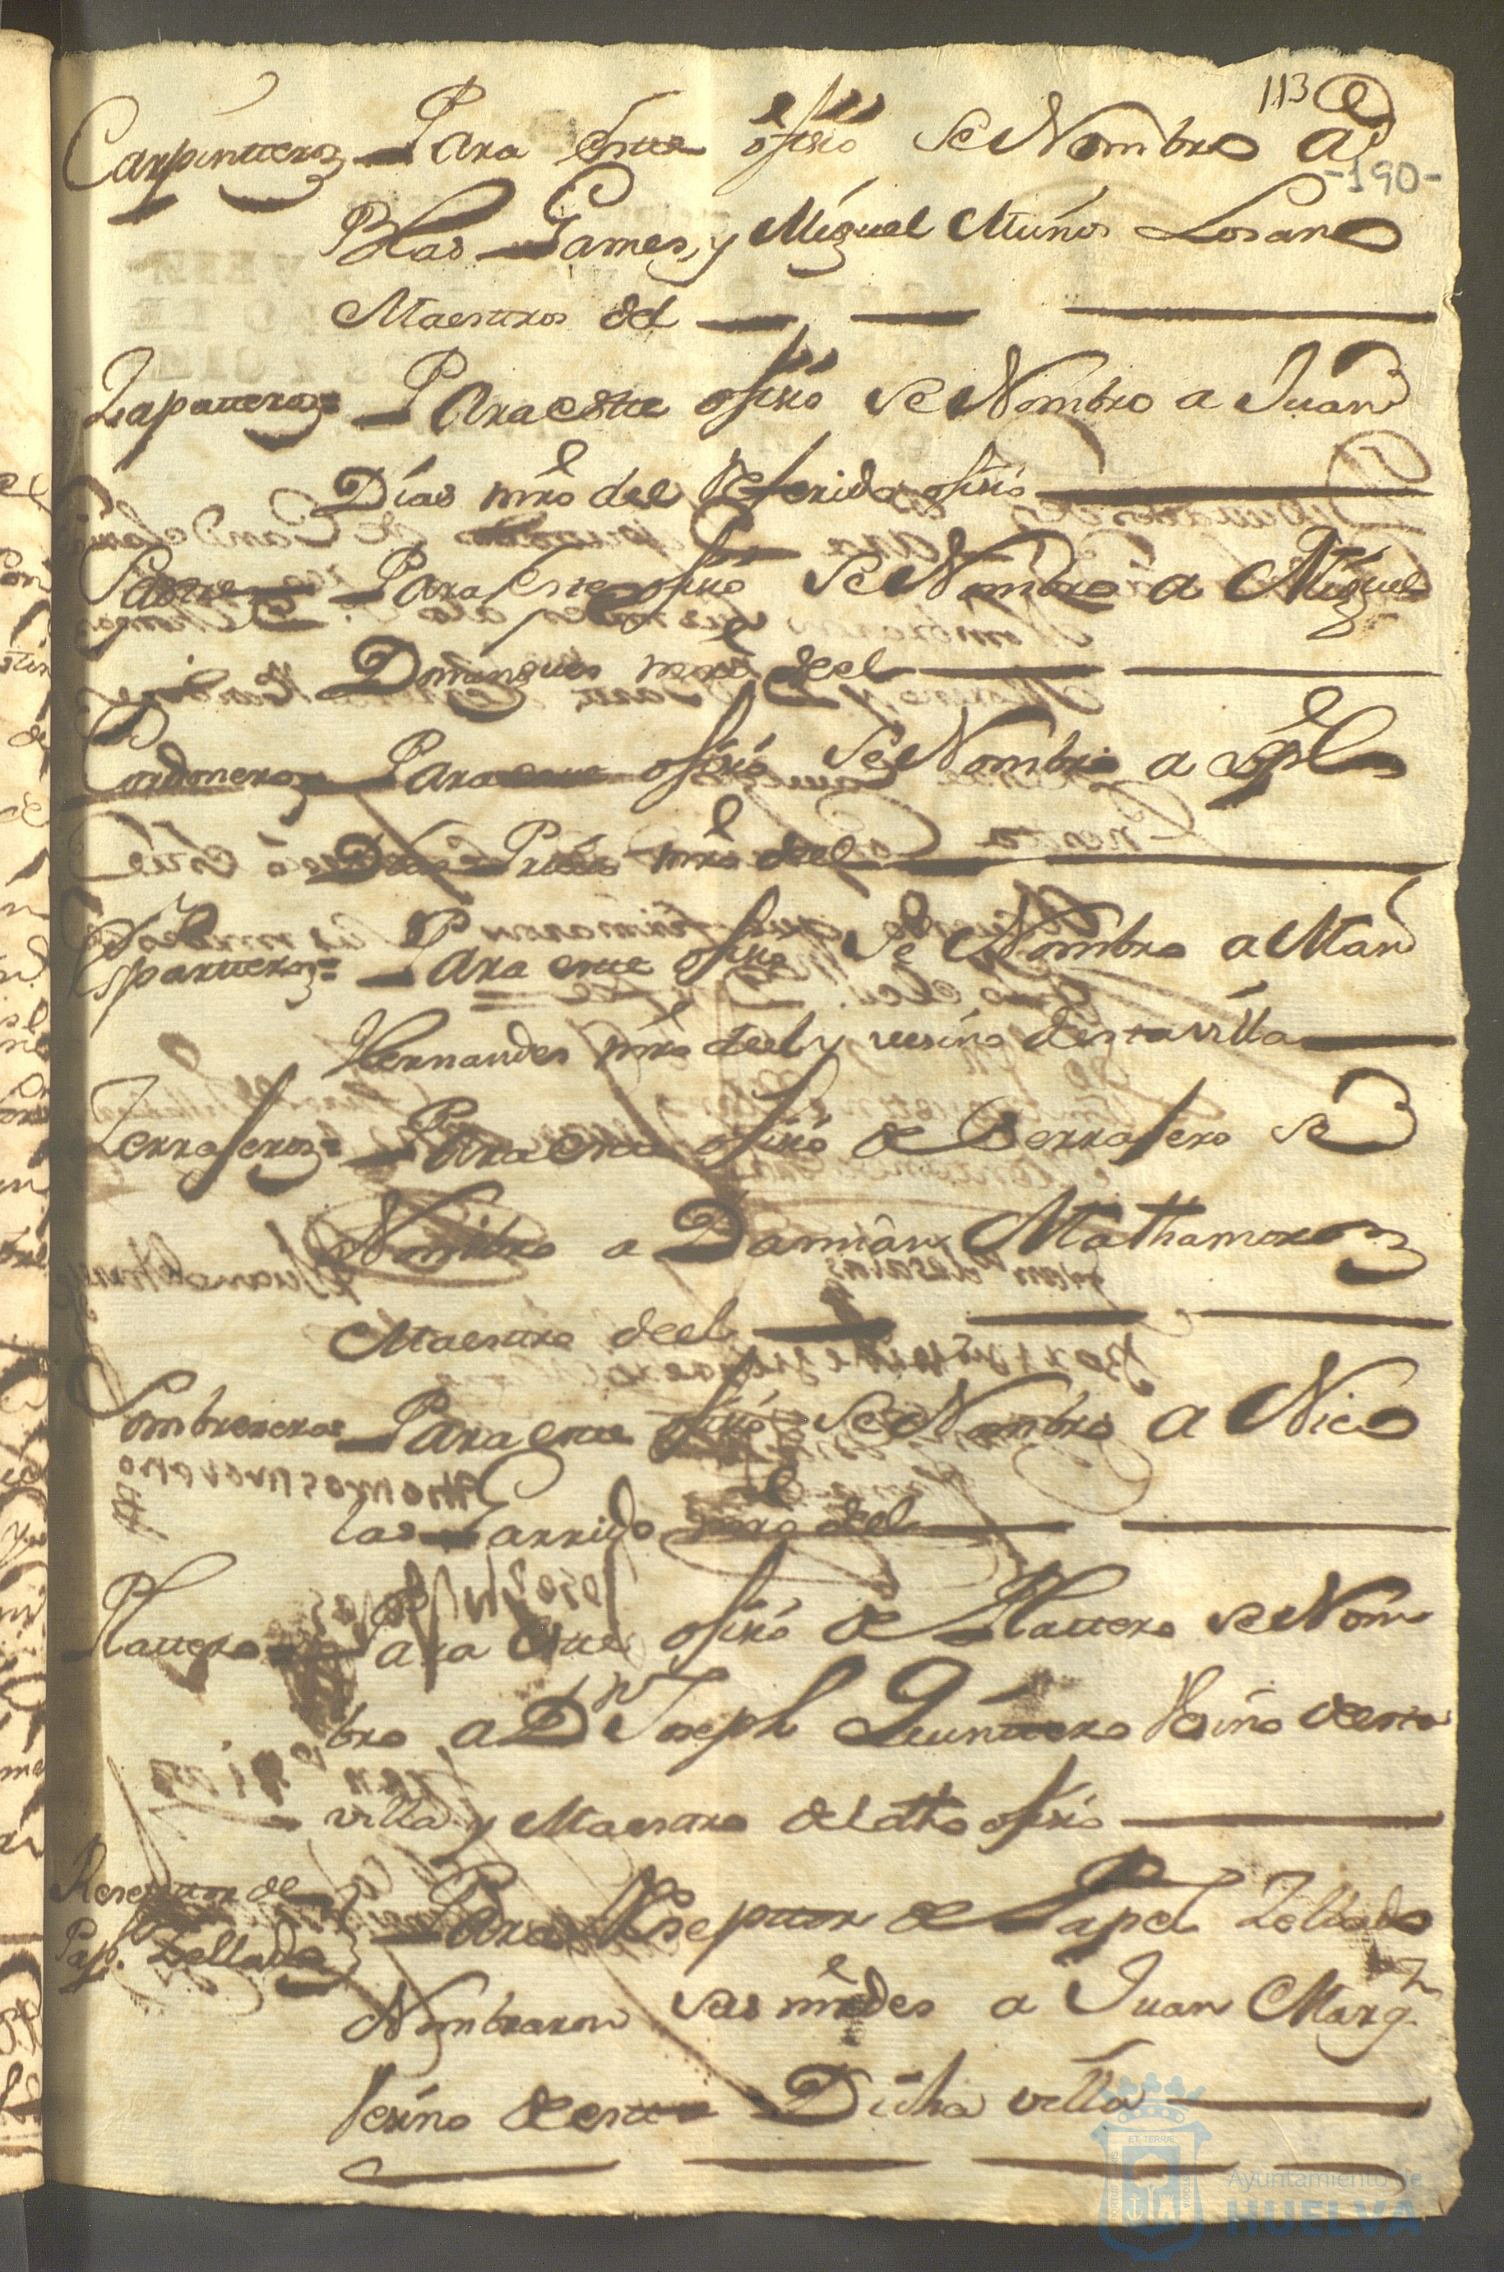 113
Carpinteros Para este ofisio se Nombro a
-190-
Blas Games y Miguel Muños Losano
Maestros del
Zapateros= Para este ofisio se Nombro a Juan
Días mro del Referido ofisio
Sastre Para este ofisio se Nombro a Miguel
Domingues mro deel
Cordoneros Para este ofisio se Nombro a
Dias Prieto mro deel
Esparteros= Para este ofisio se Nombro a Man
Hernandes mro deel y vesino desta villa
Zerrajeros= Para este ofisio de Serrajero se
Nombro a Damian Mathamoros
Maestro deel
Sombrereros Para este ofisio se Nombro a Nico
las Garrido mro deel
Plattero Para este ofisio de Plattero se Nom
bro a Dn Joseph Quinttero Vesino desta
villa y Maestro del dho ofisio
Reseptor de
Pap. Zellado
Para Reseptor de Papel Zellado
Nombraron sus mrdes a Juan Marqz
Vesino de esta Dicha villa
ET TERRÆ
Ayuntamiento de
HUELVA